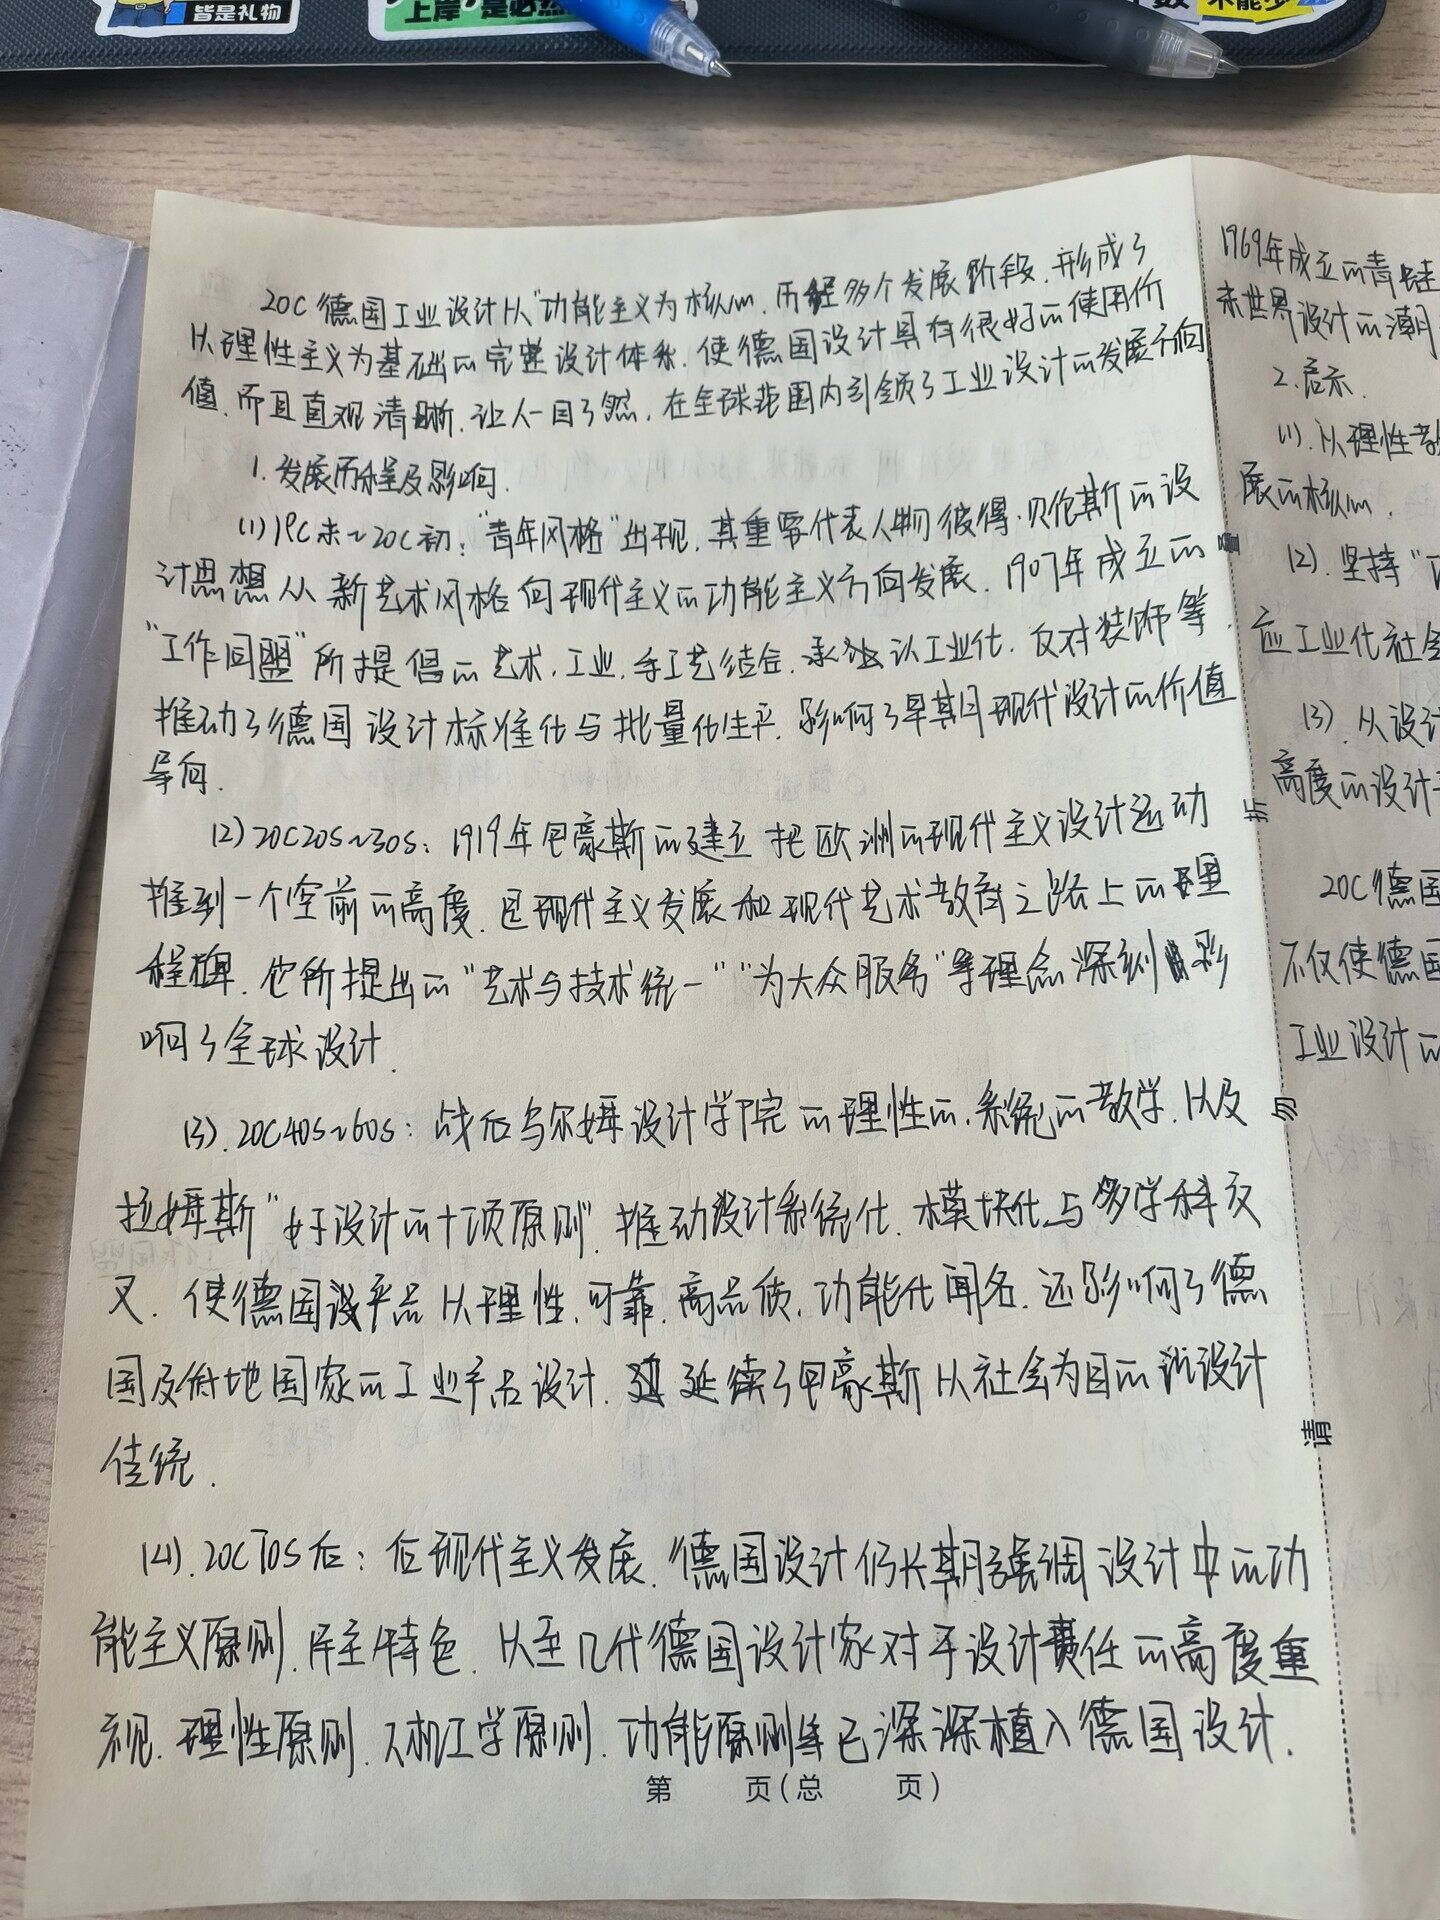 皆是礼物
上岸,是必然
不能少
20C德国工业设计以"功能主义为核心,历经多个发展阶段,形成了
以理性主义为基础的完整设计体系,使德国设计具有很好的使用价
值,而且直观清晰,让人一目了然,在全球范围内引领了工业设计的发展方向
1.发展历程及影响.
(1)19C末~20C初:"青年风格"出现,其重要代表人物彼得·贝伦斯的设
计思想从新艺术风格向现代主义的功能主义方向发展.1907年成立的
"工作同盟"所提倡的艺术、工业、手工艺结合,承认工业化,反对装饰等,
推动了德国设计标准化与批量化生产,影响了早期现代设计的价值
导向.
(2)20C20s~30s:1919年包豪斯的建立把欧洲的现代主义设计运动
推到一个空前的高度,是现代主义发展和现代艺术教育之路上的里
程碑.它所提出的"艺术与技术统一""为大众服务"等理念深刻影
响了全球设计.
(3).20C40s~60s:战后乌尔姆设计学院的理性的、系统的教学,以及
拉姆斯"好设计的十项原则",推动设计系统化、模块化与多学科交
叉.使德国产品以理性、可靠、高品质、功能化闻名.还影响了德
国及其他国家的工业产品设计.延续了包豪斯以社会为目的设计
传统.
(4).20C70s后:后现代主义发展.德国设计仍长期强调设计中的功
能主义原则、民主特色.以至几代德国设计家对于设计责任的高度重
视.理性原则、人机工学原则、功能原则等已深深植入德国设计.
第 页(总 页)
折
勿
请
1969年成立的青蛙
来世界设计的潮
2.启示.
(1).以理性
展的核心.
(2).坚持"
应工业化社会
(3).从设计
高度的设计
20C德国
不仅使德国
工业设计的